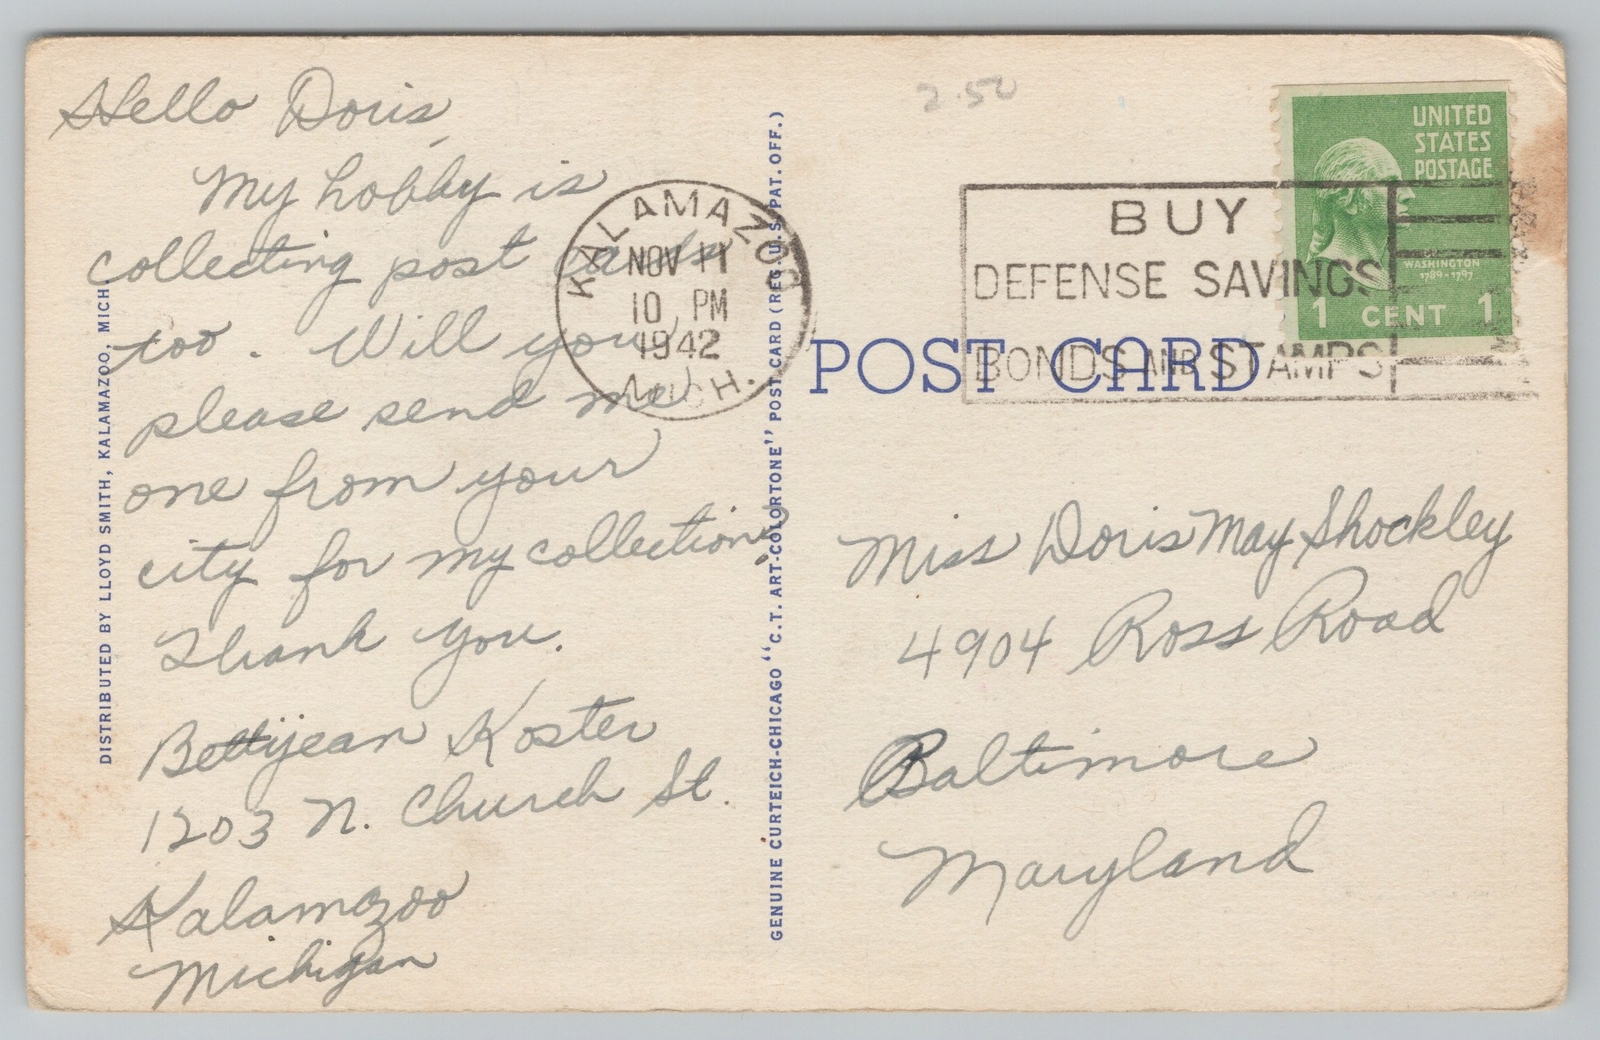 Hello Doris,
My hobby is
collecting post cards
too. Will you
please send me
one from your
city for my collection?
Thank you.
Bettijean Koster
1203 N. Church St.
Kalamazoo
Michigan
DISTRIBUTED BY LLOYD SMITH, KALAMAZOO, MICH.
KALAMAZOO
NOV 11
10 PM
1942
MICH.
GENUINE CURTEICH-CHICAGO "C.T. ART-COLORTONE" POST CARD (REG. U.S. PAT. OFF.)
2.50
BUY
DEFENSE SAVINGS
BONDS AND STAMPS
UNITED
STATES
POSTAGE
WASHINGTON
1789-1797
1 CENT 1
POST CARD
Miss Doris May Shockley
4904 Ross Road
Baltimore
Maryland